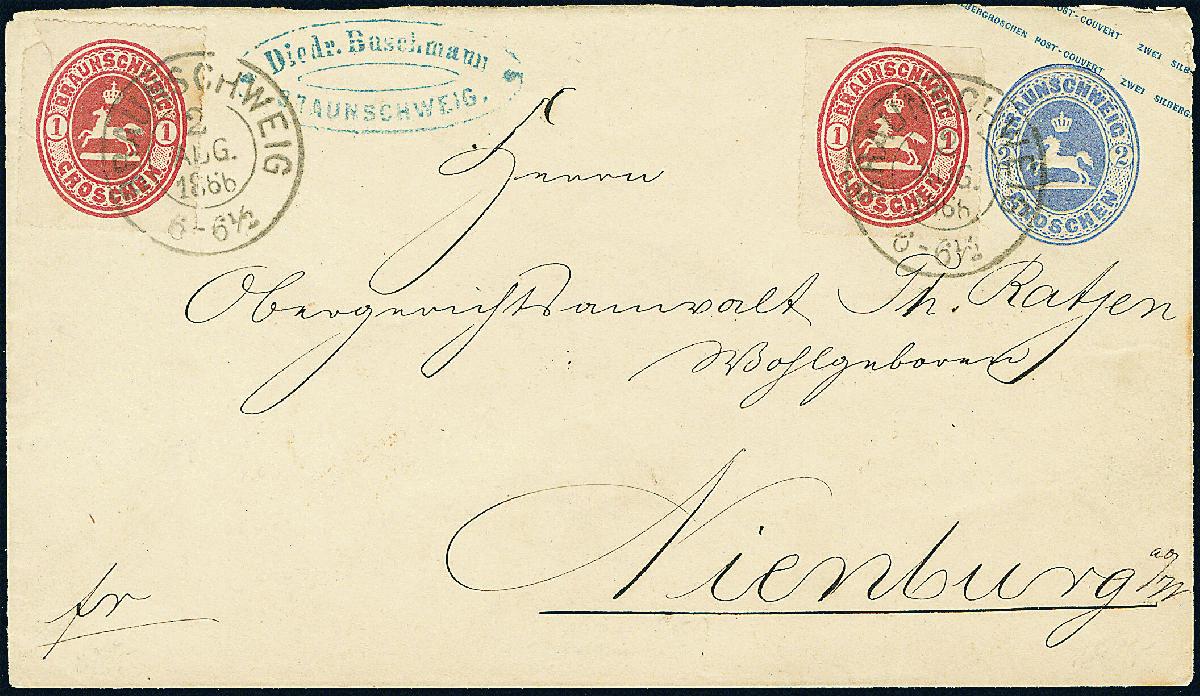 SILBERGROSCHEN POST-COUVERT ZWEI SILB
POST-COUVERT ZWEI SILBERG
BRAUNSCHWEIG
1 1
GROSCHEN
BRAUNSCHWEIG
2
AUG.
1866
6-6½
Diedr. Buschmann
BRAUNSCHWEIG.
BRAUNSCHWEIG
1 1
GROSCHEN
BRAUNSCHWEIG
2
AUG.
1866
6-6½
BRAUNSCHWEIG
2 2
GROSCHEN
Herrn
Obergerichtsanwalt Th. Ratjen
Wohlgeboren
Nienburg
fr